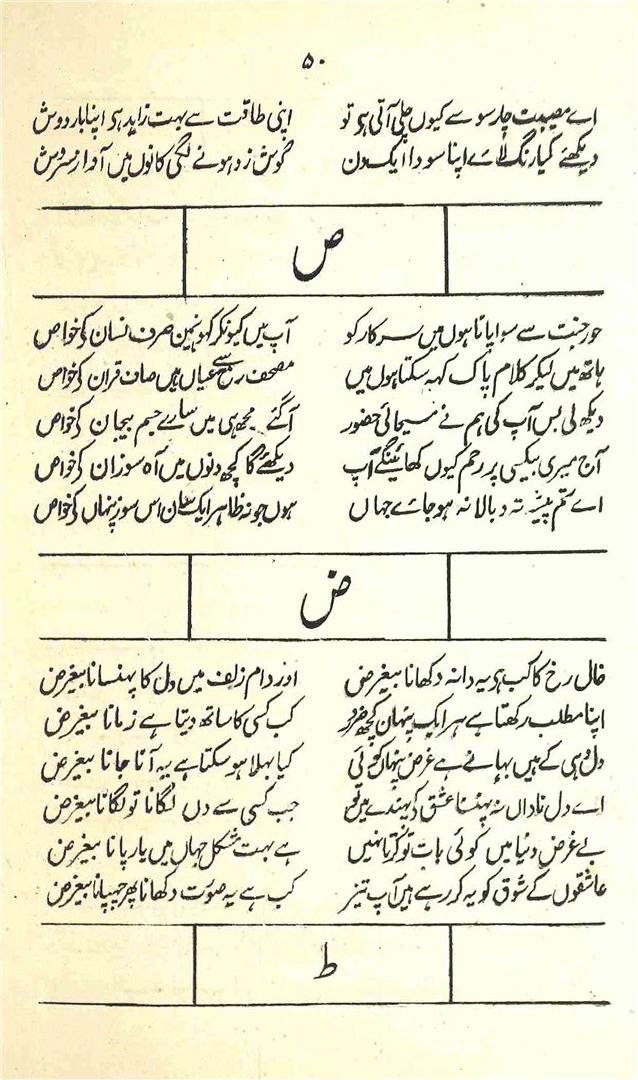 ۵۰
اے مصیبت چار سو سے کیوں چلی آتی ہی تو اپنی طاقت سے بہت زاید ہی اپنا بار دوش
دیکھئے کیا رنگ لاے اپنا سودا ایک دن گوش زد ہونے لگی کانوں میں آواز سروش
ص
حور جنت سے سوا پاتا ہوں میں سرکار کو آپ ہیں کیونکر کہوں صرف انسان کی خواص
ہاتھ میں لیکر کلام پاک کہہ سکتا ہوں میں مصحف رخ سے عیاں ہیں صاف قران کی خواص
دیکھ لی بس آپ کی ہم نے مسیحائی حضور آگئے مجھ ہی میں سارے جسم بیجان کی خواص
آج میری بیکسی پر رحم کیوں کھائینگے آپ دیکھئے گا کچھ دنوں میں آہ سوزان کی خواص
اے ستم پیشہ تہ و بالا نہ ہو جاے جہاں ہوں جو نہ ظاہر ایک اس سوز پنہاں کی خواص
ض
خال رخ کا کب ہی یہ دانہ دکھانا بیغرض اور دام زلف میں دل کا پہنسانا بیغرض
اپنا مطلب رکھتا ہے ہر ایک پنہان کچھ کب کسی کا ساتھ دیتا ہے زمانا بیغرض
دل دہی کے ہیں بہانے ہے غرض پنہاں کوئی کیا بہلا ہو سکتا ہے یہ آنا جانا بیغرض
اے دل ناداں نہ پہنسنا عشق کی پہندے میں تو جب کسی سے دل لگانا تو لگانا بیغرض
بے غرض دنیا میں کوئی بات تو کرتا نہیں ہے بہت مشکل جہاں میں یار پانا بیغرض
عاشقوں کے شوق کو یہ کر رہے ہیں آپ تیز کب ہے یہ صورت دکھانا پھر چھپانا بیغرض
ط